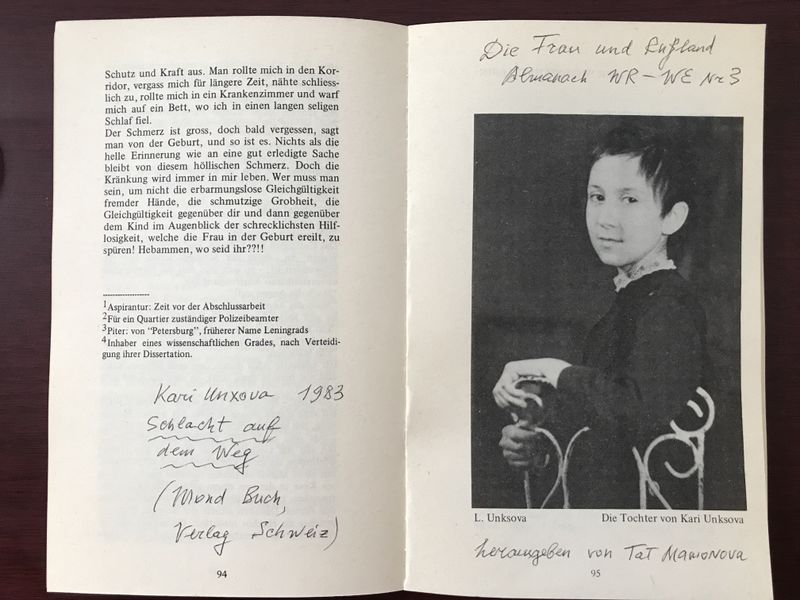 Schutz und Kraft aus. Man rollte mich in den Kor-
ridor, vergass mich für längere Zeit, nähte schliess-
lich zu, rollte mich in ein Krankenzimmer und warf
mich auf ein Bett, wo ich in einen langen seligen
Schlaf fiel.
Der Schmerz ist gross, doch bald vergessen, sagt
man von der Geburt, und so ist es. Nichts als die
helle Erinnerung wie an eine gut erledigte Sache
bleibt von diesem höllischen Schmerz. Doch die
Kränkung wird immer in mir leben. Wer muss man
sein, um nicht die erbarmungslose Gleichgültigkeit
fremder Hände, die schmutzige Grobheit, die
Gleichgültigkeit gegenüber dir und dann gegenüber
dem Kind im Augenblick der schrecklichsten Hilf-
losigkeit, welche die Frau in der Geburt ereilt, zu
spüren! Hebammen, wo seid ihr??!!
1Aspirantur: Zeit vor der Abschlussarbeit
2Für ein Quartier zuständiger Polizeibeamter
3Piter: von "Petersburg", früherer Name Leningrads
4Inhaber eines wissenschaftlichen Grades, nach Verteidi-
gung ihrer Dissertation.
Kari Unxova 1983
Schlacht auf
dem Weg
(Mond Buch,
Verlag Schweiz)
94
Die Frau und Rußland
Almanach WR-WE Nr 3
L. Unksova Die Tochter von Kari Unksova
herausgeben von Tat Mamonova
95